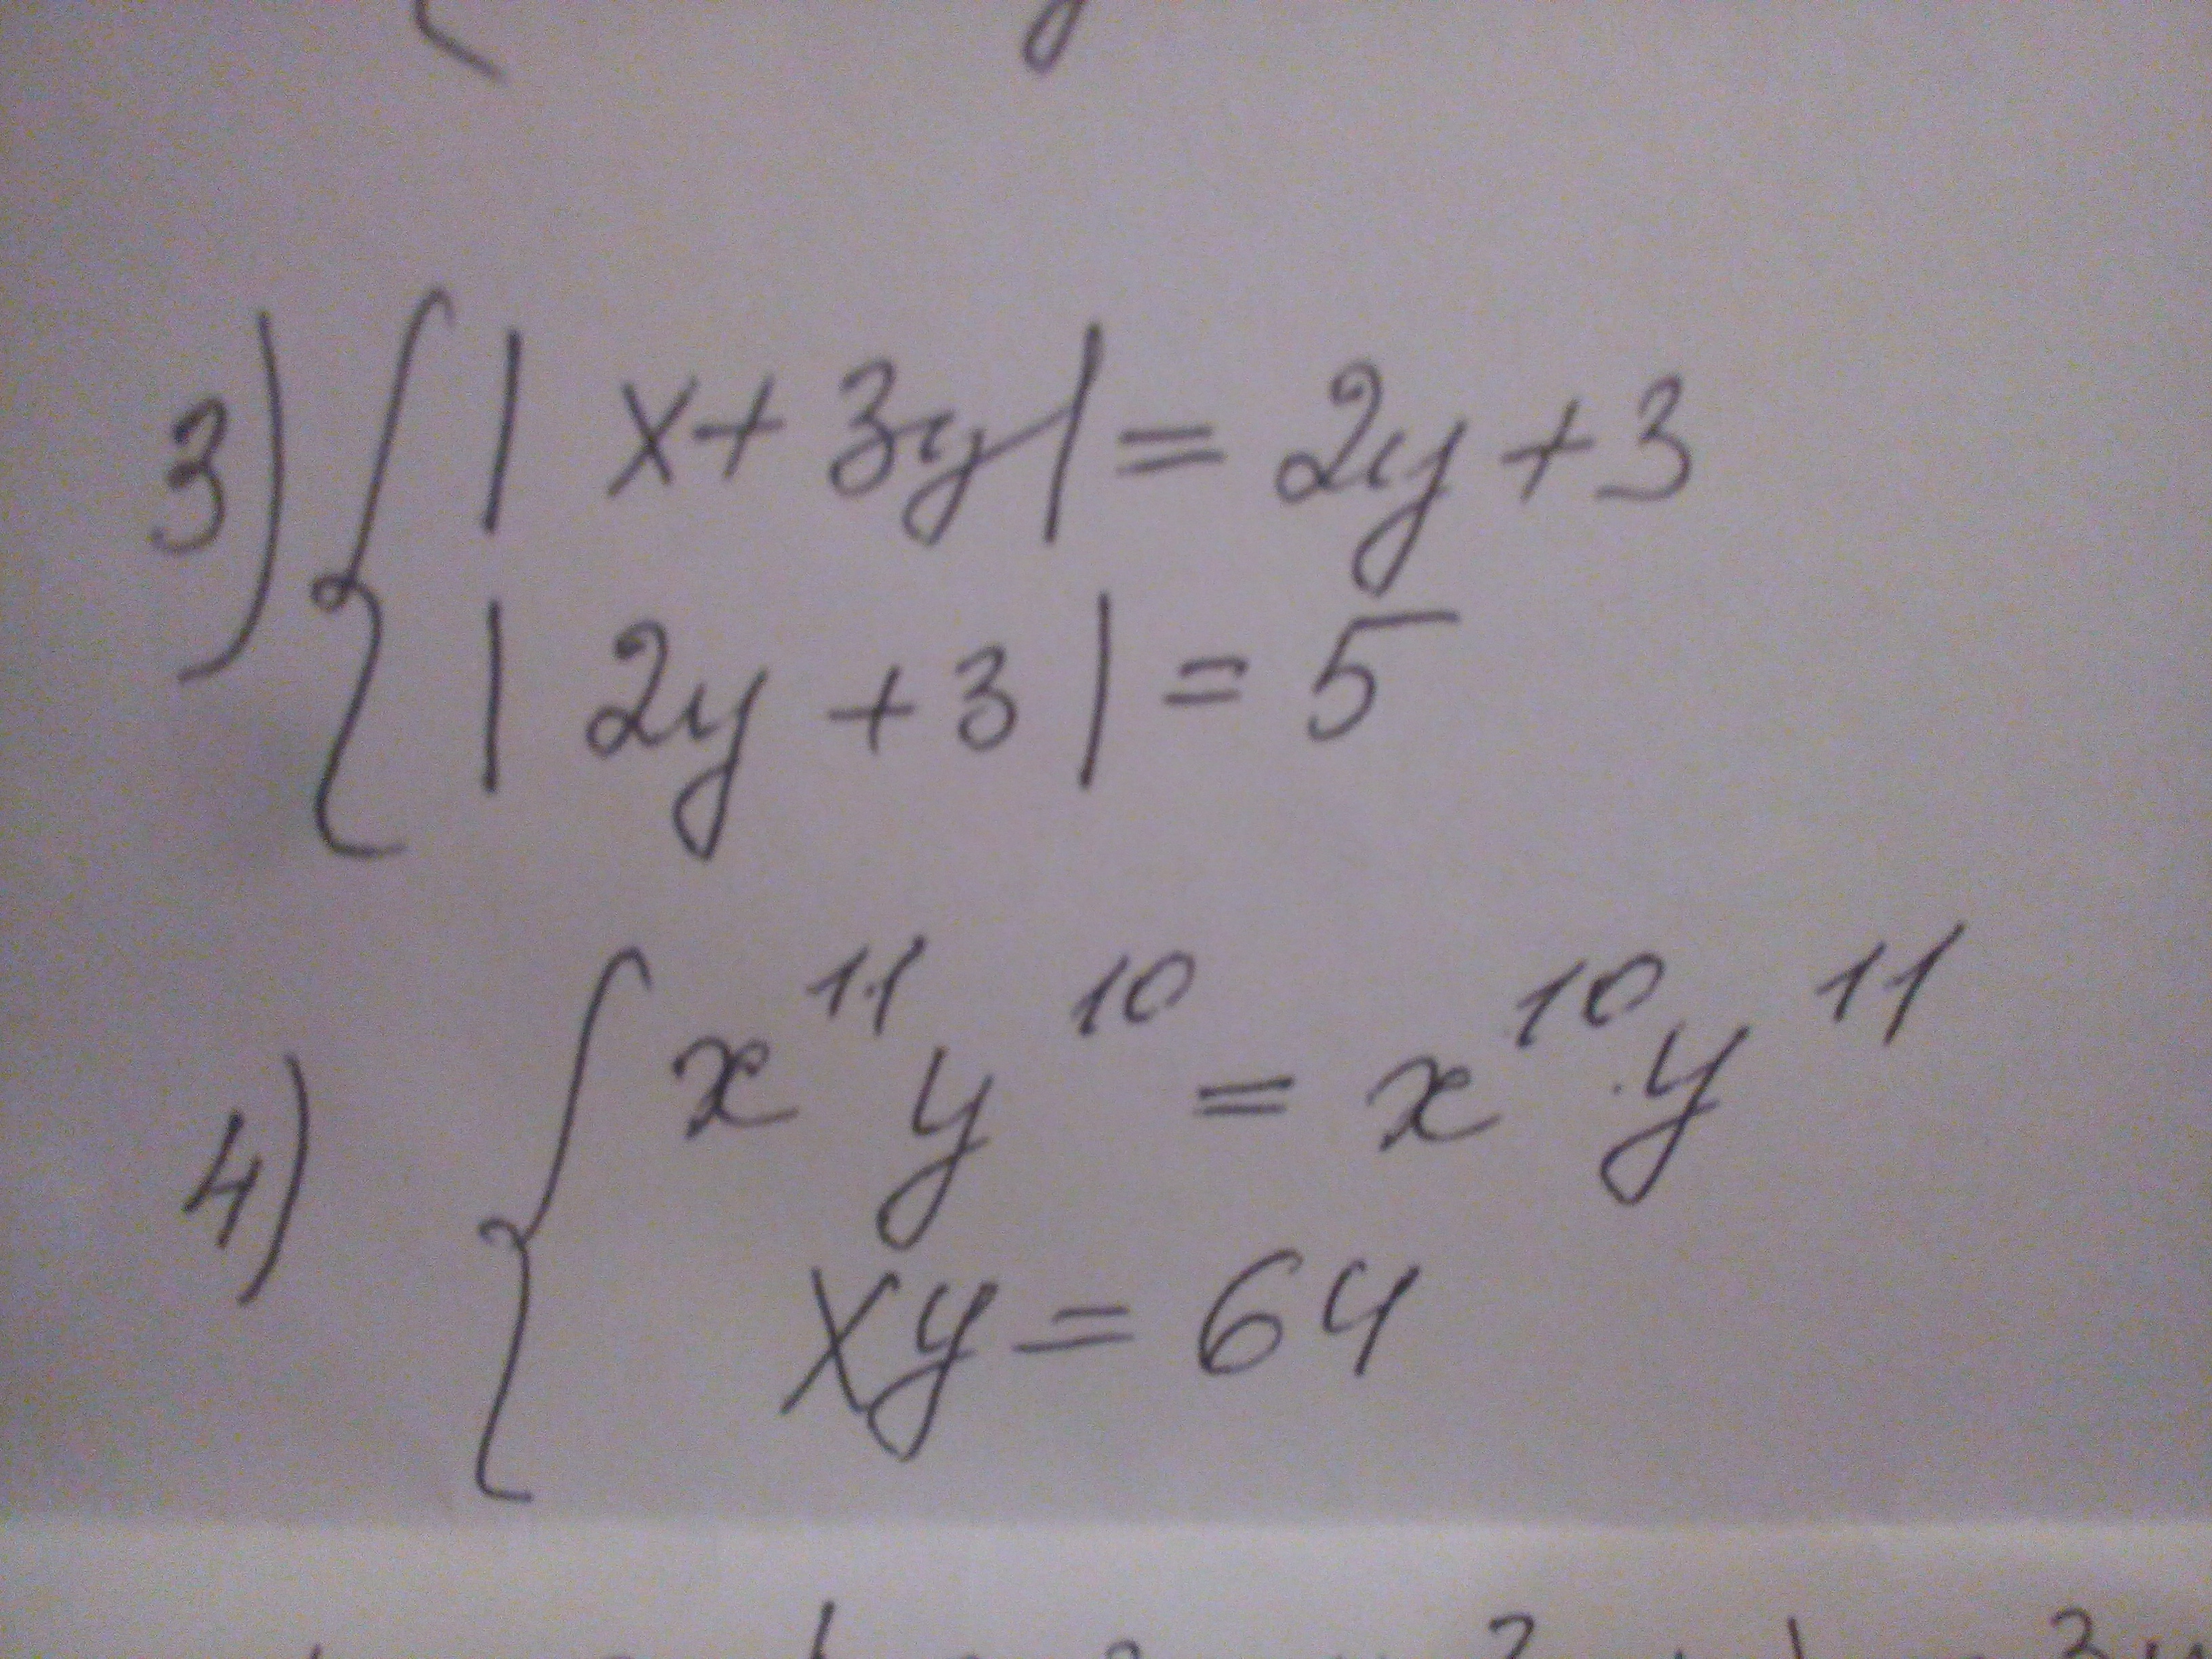 3) { |x+3y| = 2y+3
|2y+3| = 5
4) { x¹¹y¹⁰ = x¹⁰·y¹¹
xy = 64